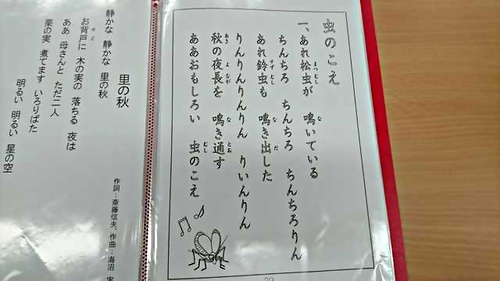 虫のこえ
一、あれ松虫が 鳴いている
ちんちろ ちんちろ ちんちろりん
あれ鈴虫も 鳴き出した
りんりんりんりん りいんりん
秋の夜長を 鳴き通す
ああおもしろい 虫のこえ
里の秋
作詞：斎藤信夫、作曲：海沼 実
静かな 静かな 里の秋
お背戸に 木の実の 落ちる 夜は
ああ 母さんと ただ二人
栗の実 煮てます いろりばた
明るい 明るい 星の空